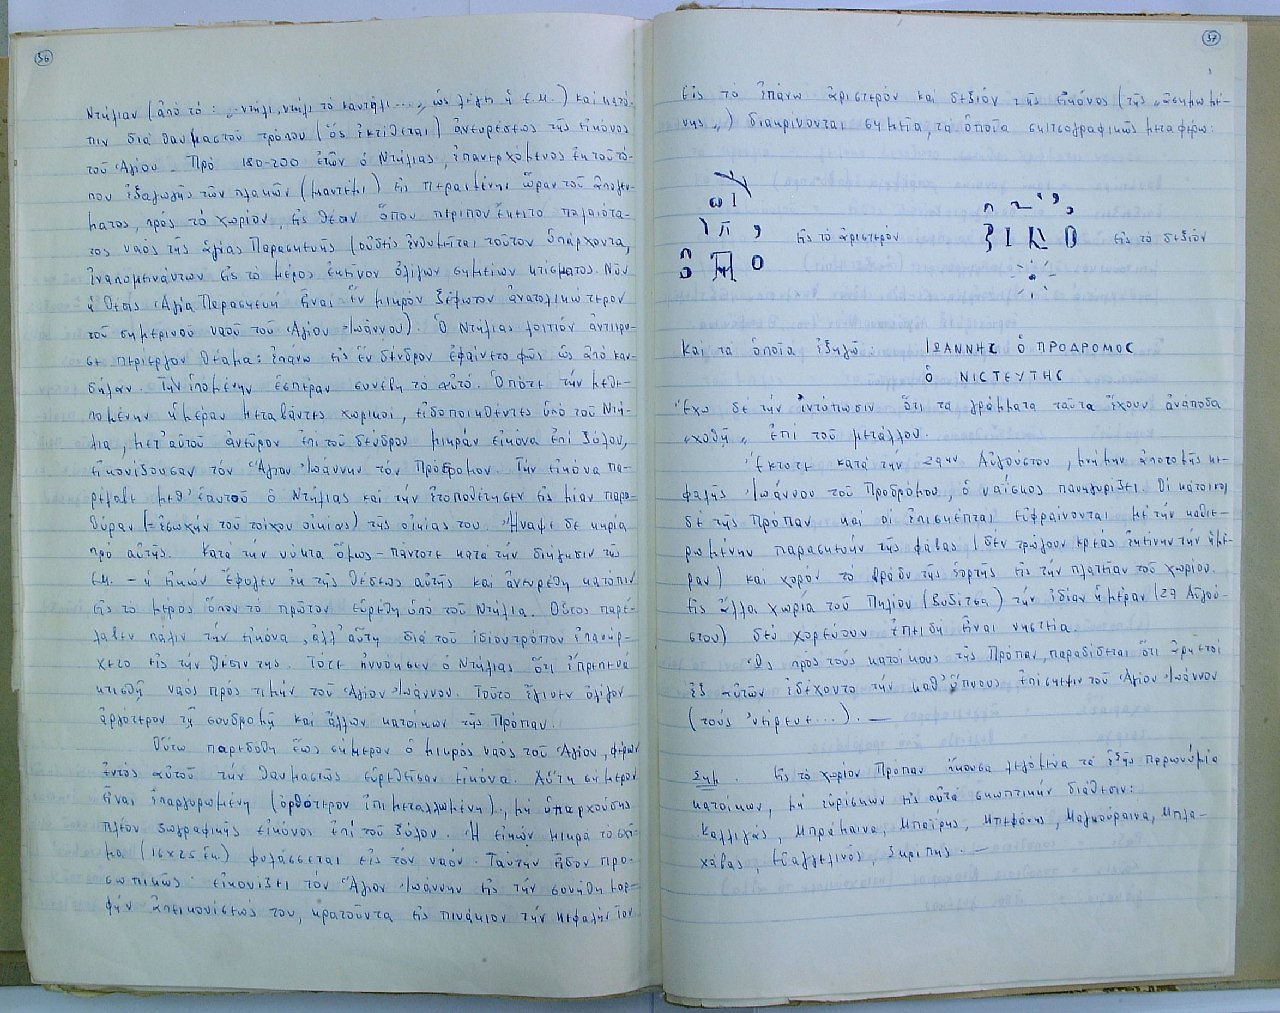 56
Ντήλιαν (ἀπό τό: „ντήλι, ντήλι τό καντήλι...„ ὡς λέγει ἡ ε.μ.) καί κατό-
πιν διά θαυμαστοῦ τρόπου (ὅς ἐκτίθεται) ἀνευρέσεως τῆς εἰκόνος
τοῦ Ἁγίου. Πρό 180-200 ἐτῶν ὁ Ντήλιας, ἐπανερχόμενος ἐκ τοῦ τό-
που ἐξαγωγῆς τῶν πλακῶν (μαντέμι) εἰς περασμένην ὥραν τοῦ ἀπογεύ-
ματος, πρός τό χωρίον, εἰς θέσιν ὅπου περίπου ἔκειτο παλαιότα-
τος ναός τῆς ἁγίας Παρασκευῆς (οὐδείς ἐνθυμεῖται τοῦτον ὑπάρχοντα,
ἐναπομεινάντων εἰς τό μέρος ἐκεῖνον ὀλίγων σημείων κτίσματος. Νῦν
ἡ θέσις Ἁγία Παρασκευή εἶναι ἕν μικρόν ξέφωτον ἀνατολικώτερον
τοῦ σημερινοῦ ναοῦ τοῦ Ἁγίου Ἰωάννου). Ὁ Ντήλιας λοιπόν ἀντίκρυ-
σε περίεργον θέαμα: ἐπάνω εἰς ἕν δένδρον ἐφαίνετο φῶς ὡς ἀπό καν-
δήλαν. Τήν ἑπομένην ἑσπέραν συνέβη τό αὐτό. Ὁπότε τήν μεθε-
πομένην ἡμέραν μεταβάντες χωρικοί, εἰδοποιηθέντες ὑπό τοῦ Ντή-
λια, μετ' αὐτοῦ ἀνεῦρον ἐπί τοῦ δένδρου μικράν εἰκόνα ἐπί ξύλου,
εἰκονίζουσαν τόν Ἅγιον Ἰωάννην τόν Πρόδρομον. Τήν εἰκόνα πα-
ρέλαβε μεθ' ἑαυτοῦ ὁ Ντήλιας καί τήν ἐτοποθέτησεν εἰς μίαν παρα-
θύραν (= ἐσωχήν τοῦ τοίχου οἰκίας) τῆς οἰκίας του. Ἤναψε δέ κηρία
πρό αὐτῆς. Κατά τήν νύκτα ὅμως - πάντοτε κατά τήν διήγησιν τῆς
ε.μ. - ἡ εἰκών ἔφυγεν ἐκ τῆς θέσεως αὐτῆς καί ἀνευρέθη κατόπιν
εἰς τό μέρος ὅπου τό πρῶτον εὑρέθη ὑπό τοῦ Ντήλια. Οὗτος παρέ-
λαβεν πάλιν τήν εἰκόνα, ἀλλ' αὕτη διά τοῦ ἰδίου τρόπου ἐπανήρ-
χετο εἰς τήν θέσιν της. Τότε ἐνόησεν ὁ Ντήλιας ὅτι ἔπρεπε νά
κτισθῇ ναός πρός τιμήν τοῦ Ἁγίου Ἰωάννου. Τοῦτο ἔγινεν ὀλίγον
ἀργότερον τῇ συνδρομῇ καί ἄλλων κατοίκων τῆς Πρόπαν.
Οὕτω παρεδόθη ἕως σήμερον ὁ μικρός ναός τοῦ Ἁγίου, φέρων
ἐντός αὐτοῦ τήν θαυμαστῶς εὑρεθεῖσαν εἰκόνα. Αὕτη σήμερον
εἶναι ἐπαργυρωμένη (ὀρθότερον ἐπιμεταλλωμένη), μή ὑπαρχούσης
πλέον ζωγραφικῆς εἰκόνος ἐπί τοῦ ξύλου. Ἡ εἰκών μικρά τό σχῆ-
μα (16x25 ἑκ.) φυλάσσεται εἰς τόν ναόν. Ταύτην εἶδον προ-
σωπικῶς· εἰκονίζει τόν Ἅγιον Ἰωάννην εἰς τήν συνήθη μορ-
φήν ἀπεικονίσεώς του, κρατοῦντα εἰς πινάκιον τήν κεφαλήν του
37
Εἰς τό ἐπάνω ἀριστερόν καί δεξιόν τῆς εἰκόνος (τῆς „ἀσημωμέ-
νης„) διακρίνονται σημεῖα, τά ὁποῖα σκιτσογραφικῶς μεταφέρω:
εἰς τό ἀριστερόν
εἰς τό δεξιόν
Καί τά ὁποῖα ἐξηγῶ: ΙΩΑΝΝΗΣ Ὁ ΠΡΟΔΡΟΜΟΣ
Ὁ ΝΙΣΤΕΥΤΗΣ
Ἔχω δέ τήν ἐντύπωσιν ὅτι τά γράμματα ταῦτα ἔχουν ἀνάποδα
„χυθῆ„ ἐπί τοῦ μετάλλου.
Ἔκτοτε κατά τήν 29ην Αὐγούστου, μνήμην ἀποτομῆς κε-
φαλῆς Ἰωάννου τοῦ Προδρόμου, ὁ ναΐσκος πανηγυρίζει. Οἱ κάτοικοι
δέ τῆς Πρόπαν καί οἱ ἐπισκέπται εὐφραίνονται μέ τήν καθιε-
ρωμένην παρασκευήν τῆς φάβας (δέν τρώγουν κρέας ἐκείνην τήν ἡμέ-
ραν) καί χορόν τό βράδυ τῆς ἑορτῆς εἰς τήν πλατεῖαν τοῦ χωρίου.
Εἰς ἄλλα χωρία τοῦ Πηλίου (Βυζίτσα) τήν ἰδίαν ἡμέραν (29 Αὐγού-
στου) δέν χορεύουν ἐπειδή εἶναι νηστεία.
Ὡς πρός τούς κατοίκους τῆς Πρόπαν, παραδίδεται ὅτι ἀρκετοί
ἐξ αὐτῶν ἐδέχοντο τήν καθ' ὕπνους ἐπίσκεψιν τοῦ Ἁγίου Ἰωάννου
(τούς ὑπέρευε...). —
Σημ. Εἰς τό χωρίον Πρόπαν ἤκουσα λεγόμενα τά ἑξῆς παρωνύμια
κατοίκων, μή εὑρίσκων εἰς αὐτά σκωπτικήν διάθεσιν:
Καλλιγάς, Μπράμαινα, Μπαΐρης, Μπεφάνης, Μαγκούραινα, Μπλα-
χάβας, Εὐαγγελινός, Σκρίπης. —